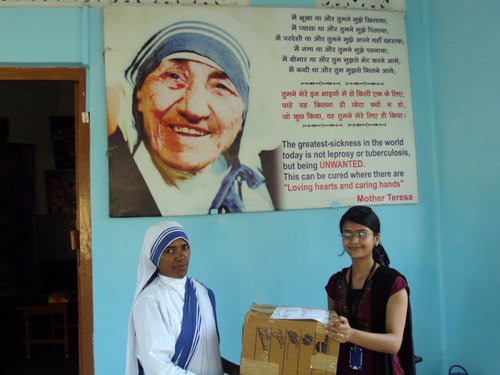 मैं भूखा था और तुमने मुझे खिलाया,
मैं प्यासा था और तुमने मुझे पिलाया,
मैं परदेशी था और तुमने मुझे अपने यहाँ ठहराया,
मैं नंगा था और तुमने मुझे पहनाया,
मैं बीमार था और तुम मुझसे भेंट करने आये;
मैं बन्दी था और तुम मुझसे मिलने आये;
तुमने मेरे इन भाइयों में से किसी एक के लिए,
चाहे वह कितना ही छोटा क्यों न हो,
जो कुछ किया, वह तुमने मेरे लिए ही किया।
The greatest-sickness in the world
today is not leprosy or tuberculosis,
but being UNWANTED.
This can be cured where there are
"Loving hearts and caring hands"
Mother Teresa